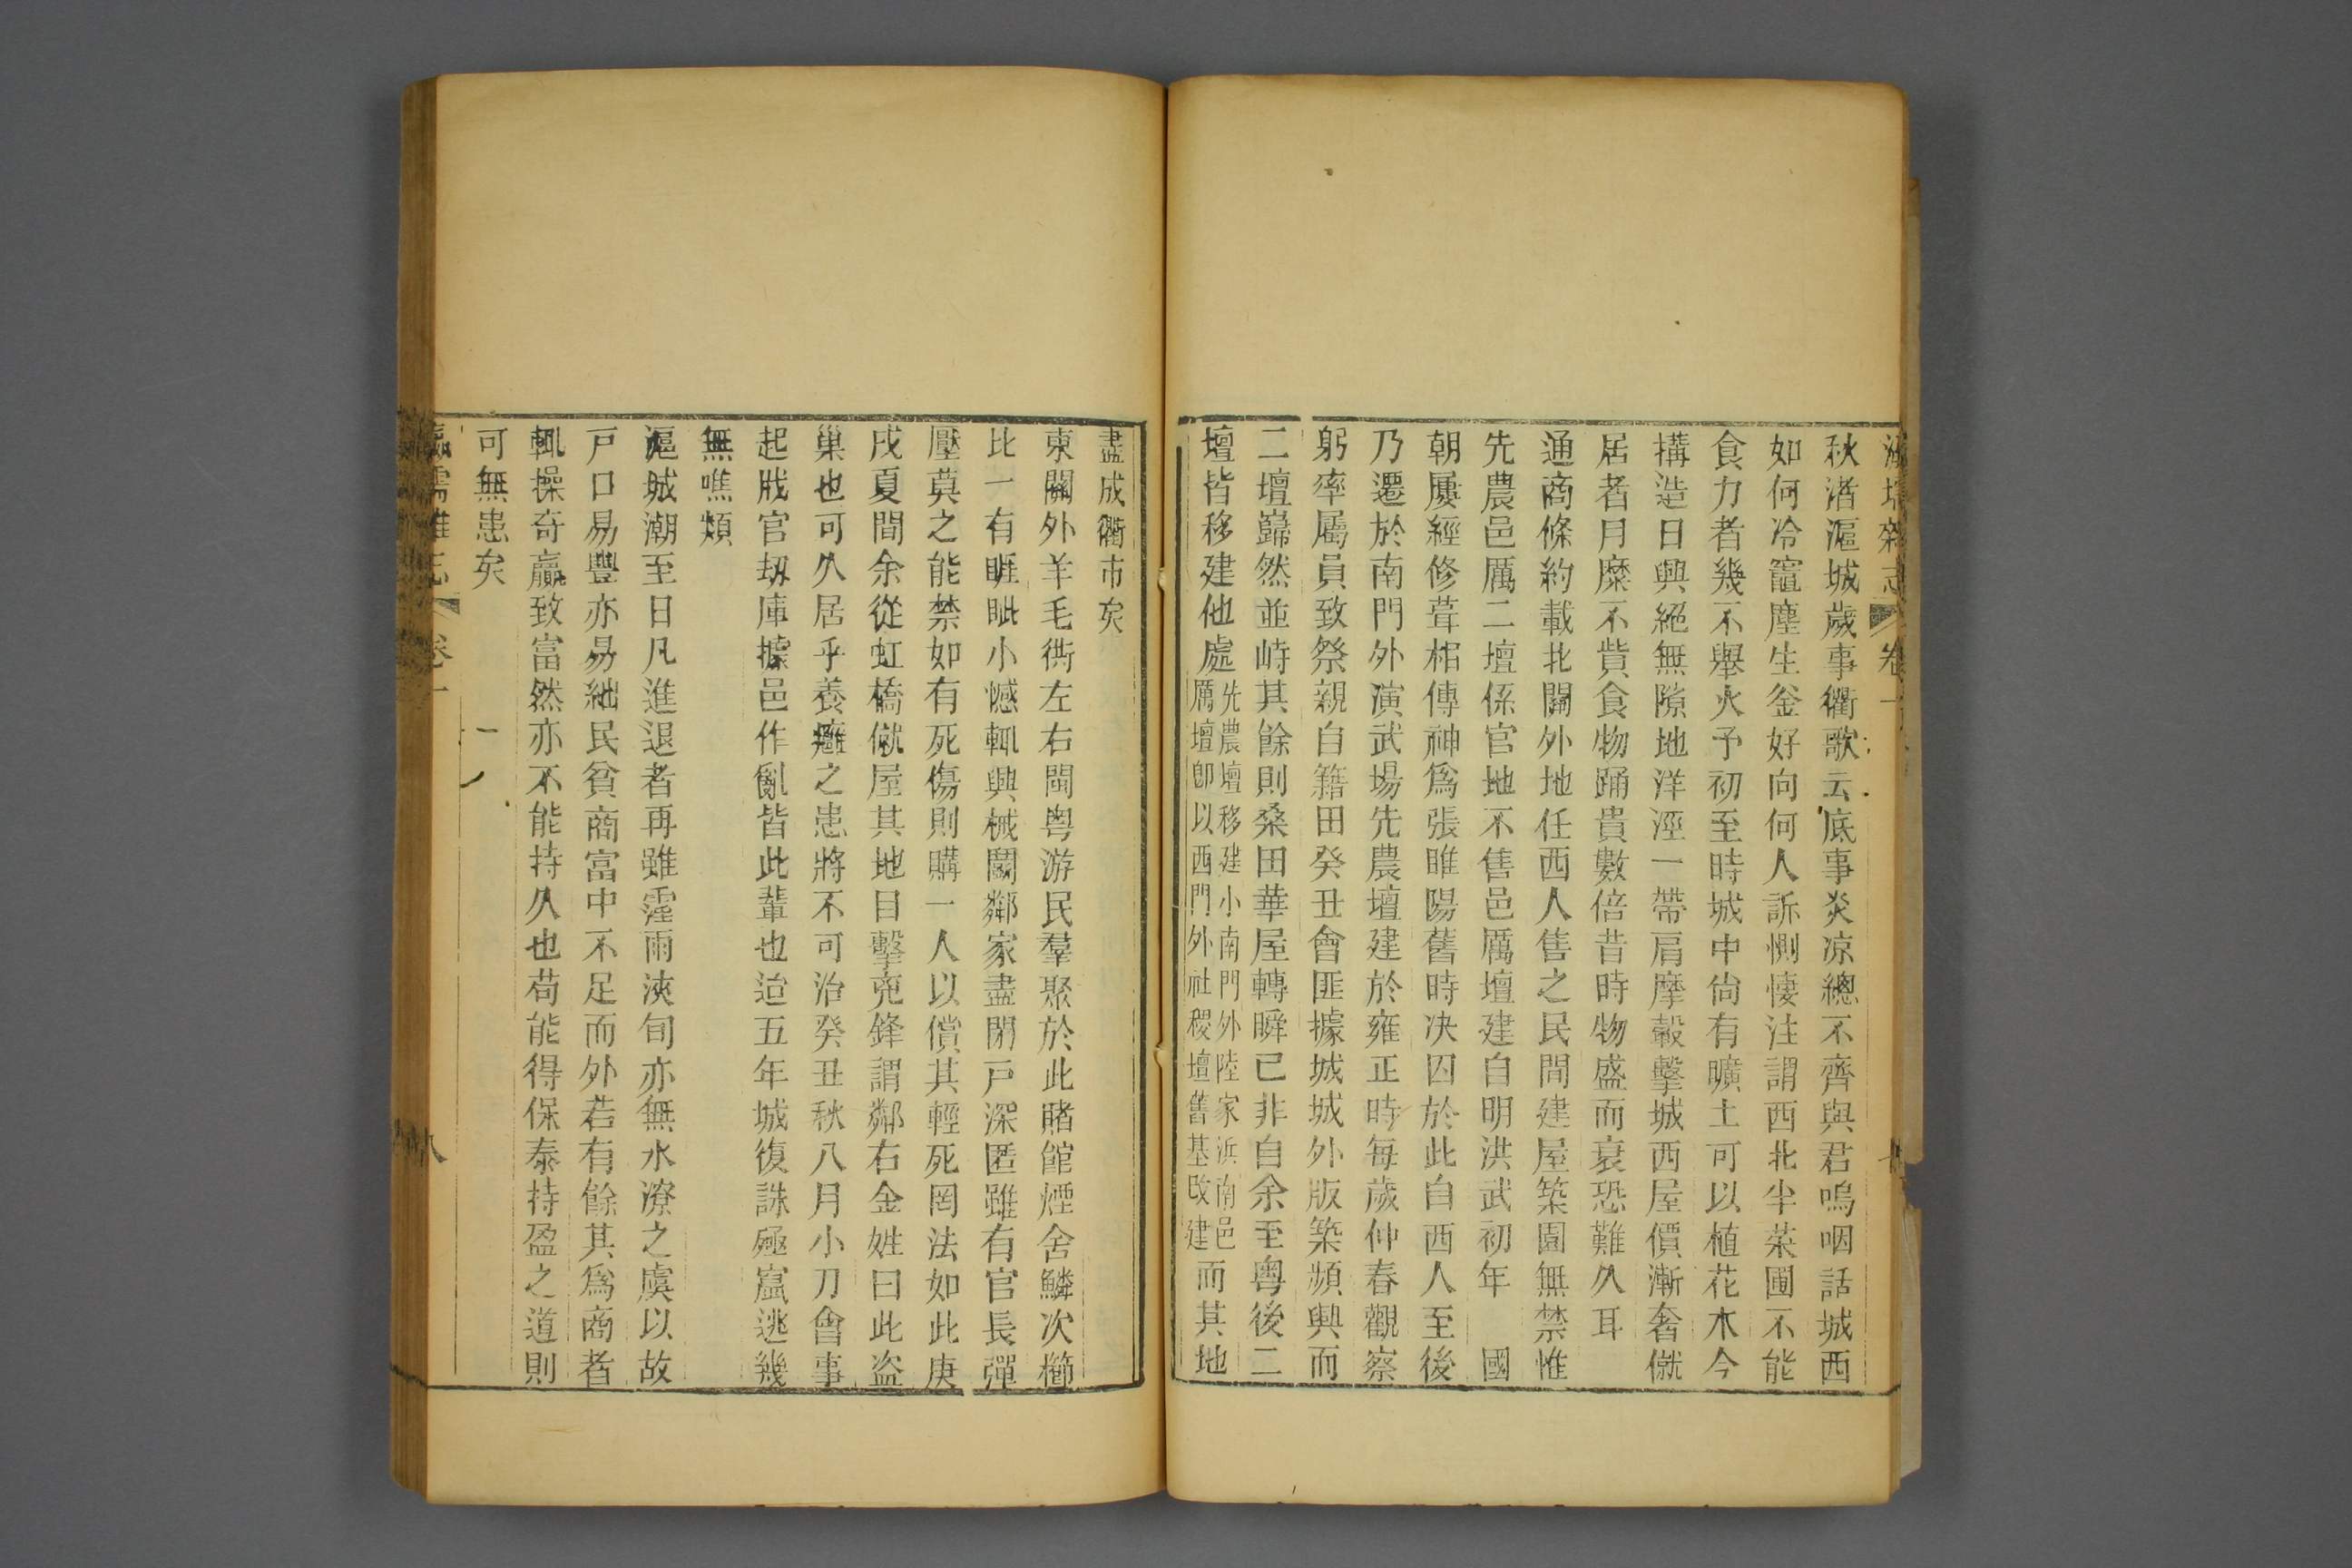 瀛壖雜志 卷一
秋渚滬城歲事衢歌云底事炎凉總不齊與君嗚咽話城西
如何冷竈塵生釜好向何人訴惻悽注謂西北半菜圃不能
食力者幾不舉火予初至時城中尙有曠土可以植花木今
搆造日興絕無隙地洋涇一帶肩摩轂擊城西屋價漸奢僦
居者月糜不貲食物踊貴數倍昔時物盛而衰恐難久耳
通商條約載北關外地任西人售之民間建屋築園無禁惟
先農邑厲二壇係官地不售邑厲壇建自明洪武初年　國
朝屢經修葺相傳神爲張睢陽舊時决囚於此自西人至後
乃遷於南門外演武場先農壇建於雍正時每歲仲春觀察
躬率屬員致祭親自籍田癸丑會匪據城城外版築頻興而
二壇巋然並峙其餘則桑田華屋轉瞬已非自余至粵後二
壇皆移建他處先農壇移建小南門外陸家浜南邑厲壇卽以西門外社稷壇舊基改建而其地
盡成衢市矣
東關外羊毛衖左右閩粵游民羣聚於此賭館煙舍鱗次櫛
比一有睚眦小憾輒興械鬬鄰家盡閉戸深匿雖有官長彈
壓莫之能禁如有死傷則購一人以償其輕死罔法如此庚
戌夏間余從虹橋僦屋其地目擊兇鋒謂鄰右金姓曰此盜
巢也可久居乎養癰之患將不可治癸丑秋八月小刀會事
起戕官刼庫據邑作亂皆此輩也迨五年城復誅殛竄逃幾
無噍類
滬城潮至日凡進退者再雖霪雨浹旬亦無水潦之虞以故
戸口易豐亦易絀民貧商富中不足而外若有餘其爲商者
輒操奇贏致富然亦不能持久也苟能得保泰持盈之道則
可無患矣
瀛壖雜志 卷一 八